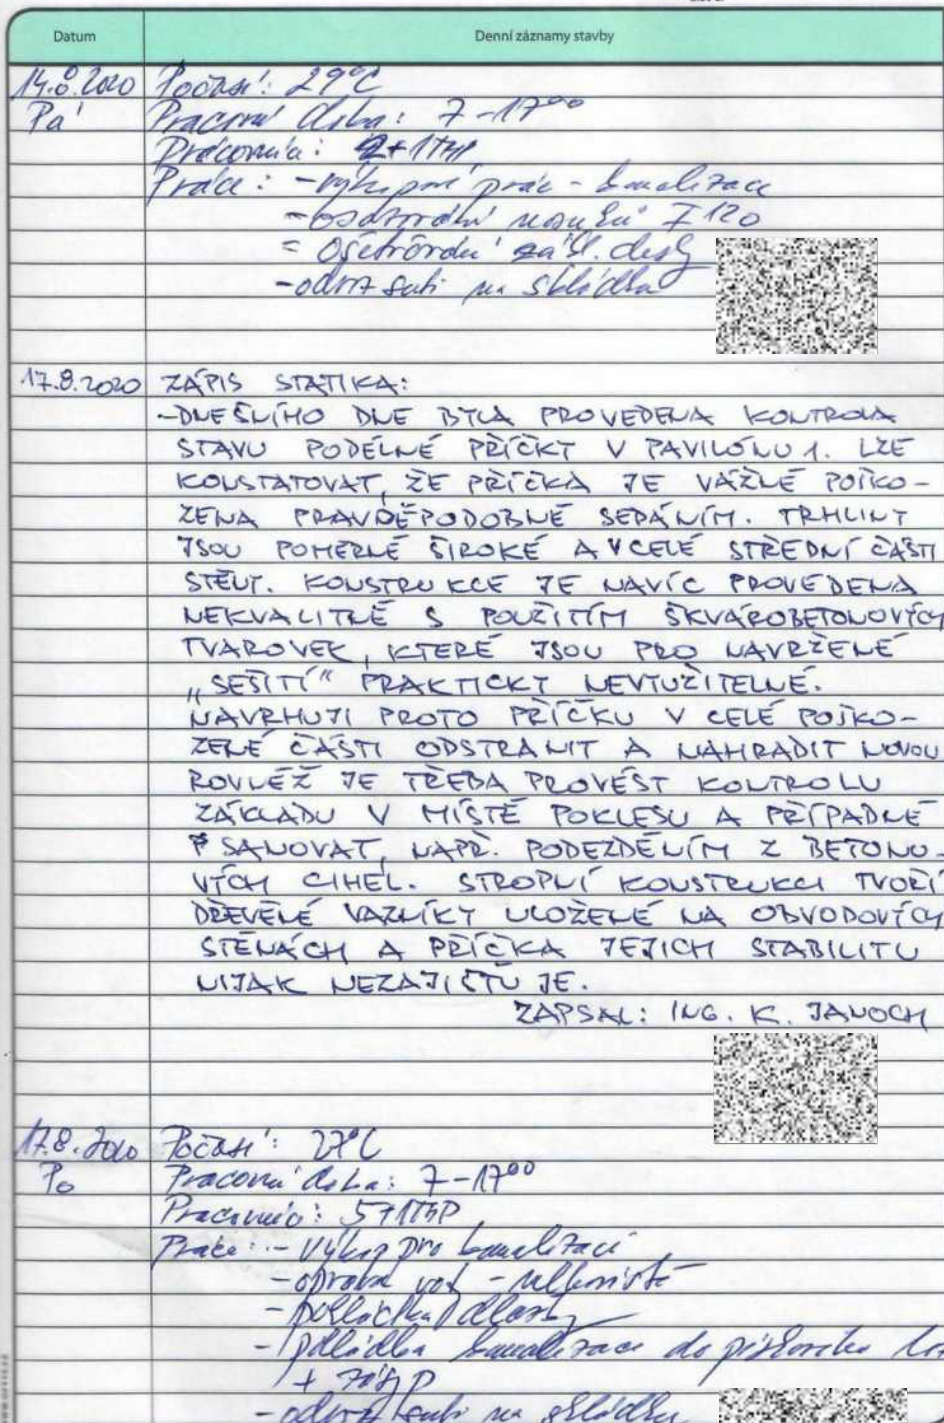 Datum
Denní záznamy stavby
14.8.2020 Počasí: 29°C
Pá Pracovní doba: 7-17⁰⁰
Pracovníci: 2+1THP
Práce: - výkopové práce - kanalizace
- osazování nosníků I 120
- Ošetřování zákl. desky
- odvoz suti na skládku
17.8.2020 ZÁPIS STATIKA:
-DNEŠNÍHO DNE BYLA PROVEDENA KONTROLA
STAVU PODÉLNÉ PŘÍČKY V PAVILÓNU 1. LZE
KONSTATOVAT, ŽE PŘÍČKA JE VÁŽNĚ POŠKO-
ZENA PRAVDĚPODOBNĚ SEDÁNÍM. TRHLINY
JSOU POMĚRNĚ ŠIROKÉ A V CELÉ STŘEDNÍ ČÁSTI
STĚNY. KONSTRUKCE JE NAVÍC PROVEDENA
NEKVALITNĚ S POUŽITÍM ŠKVÁROBETONOVÝCH
TVAROVEK, KTERÉ JSOU PRO NAVRŽENÉ
„SEŠITÍ“ PRAKTICKY NEVYUŽITELNÉ.
NAVRHUJI PROTO PŘÍČKU V CELÉ POŠKO-
ZENÉ ČÁSTI ODSTRANIT A NAHRADIT NOVOU
ROVNĚŽ JE TŘEBA PROVÉST KONTROLU
ZÁKLADU V MÍSTĚ POKLESU A PŘÍPADNĚ
SANOVAT, NAPŘ. PODEZDĚNÍM Z BETONO-
VÝCH CIHEL. STROPNÍ KONSTRUKCI TVOŘÍ
DŘEVĚNÉ VAZNÍKY ULOŽENÉ NA OBVODOVÝCH
STĚNÁCH A PŘÍČKA JEJICH STABILITU
NIJAK NEZAJIŠTUJE.
ZAPSAL: ING. K. JANOCH
17.8.2020 Počasí: 27°C
Po Pracovní doba: 7-17⁰⁰
Pracovníci: 5+1THP
Práce: - Výkop pro kanalizaci
- oprava
- pokládka dlažby
- pokládka kanalizace do pískového
+ zásyp
- odvoz suti na skládku